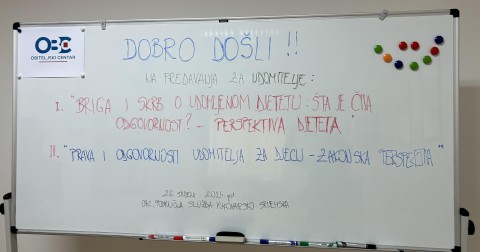 OBC
OBITELJSKI CENTAR
DOBRO DOŠLI !!
NA PREDAVANJA ZA UDOMITELJE :
I. "BRIGA I SKRB O UDOMLJENOM DJETETU - ŠTA JE ČIJA
ODGOVORNOST? - PERSPEKTIVA DJETETA"
II. "PRAVA I ODGOVORNOSTI UDOMITELJA ZA DJECU - ZAKONSKA PERSPEKTIVA"
SLUŽBA VUKOVARSKO SRIJEMSKA